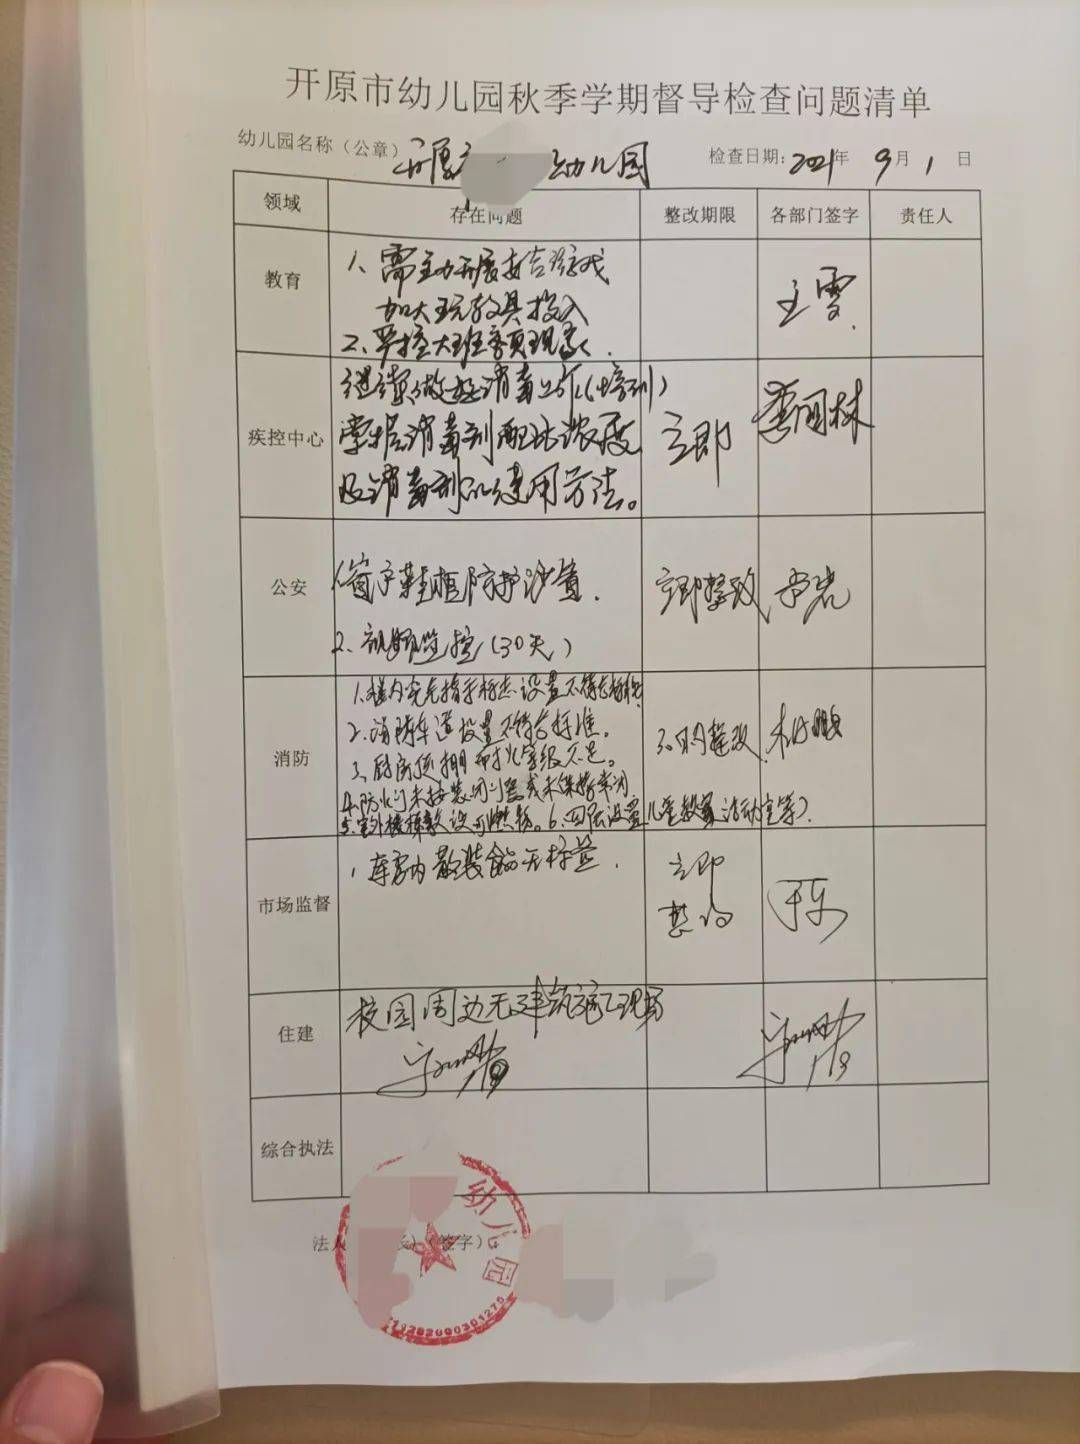 开原市幼儿园秋季学期督导检查问题清单
幼儿园名称（公章） 开原 幼儿园 检查日期：2021年 9月 1日
领域 存在问题 整改期限 各部门签字 责任人
教育
1、需主动开展结合游戏
加大玩教具投入
2、严控大班额现象.
疾控中心
继续做好消毒工作(培训)
掌握消毒剂配比浓度
及消毒剂的使用方法。
立即
公安
1、窗户鞋柜防护设置.
2、视频监控(30天)
立即整改
消防
1.楼内疏散指示标志设置不符合标准
2、消防车道设置不符合标准。
3、厨房顶棚耐火等级不足。
4.防火门未按装闭门器或未保持常闭
5、室外楼梯敷设可燃物。6、四层设置儿童教室活动室等）
市场监督
1、库房内散装食品无标签.
立即
整改
于乐
住建
校园周边无建筑施工现场
综合执法
法人 （签字）：
幼儿园